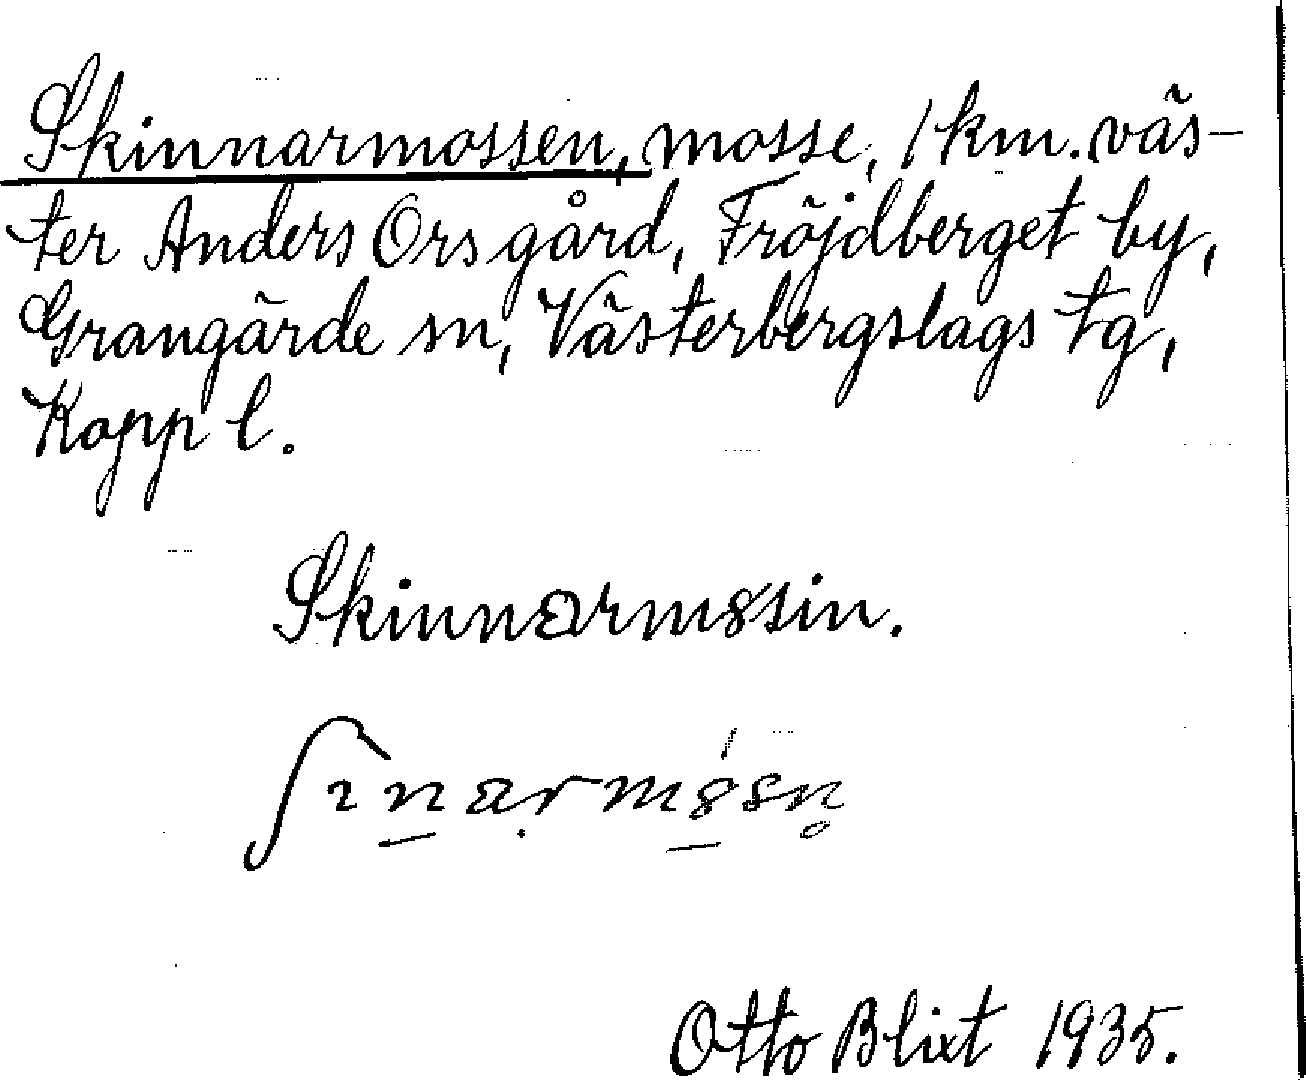 Skinnarmossen, mosse, 1 km. väs-
ter Anders Ors gård, Fröjdberget by,
Grangärde sn, Västerbergslags tg,
Kopp l.
Skinnarm8sin.
ʃınarm8sn̥
Otto Blixt 1935.